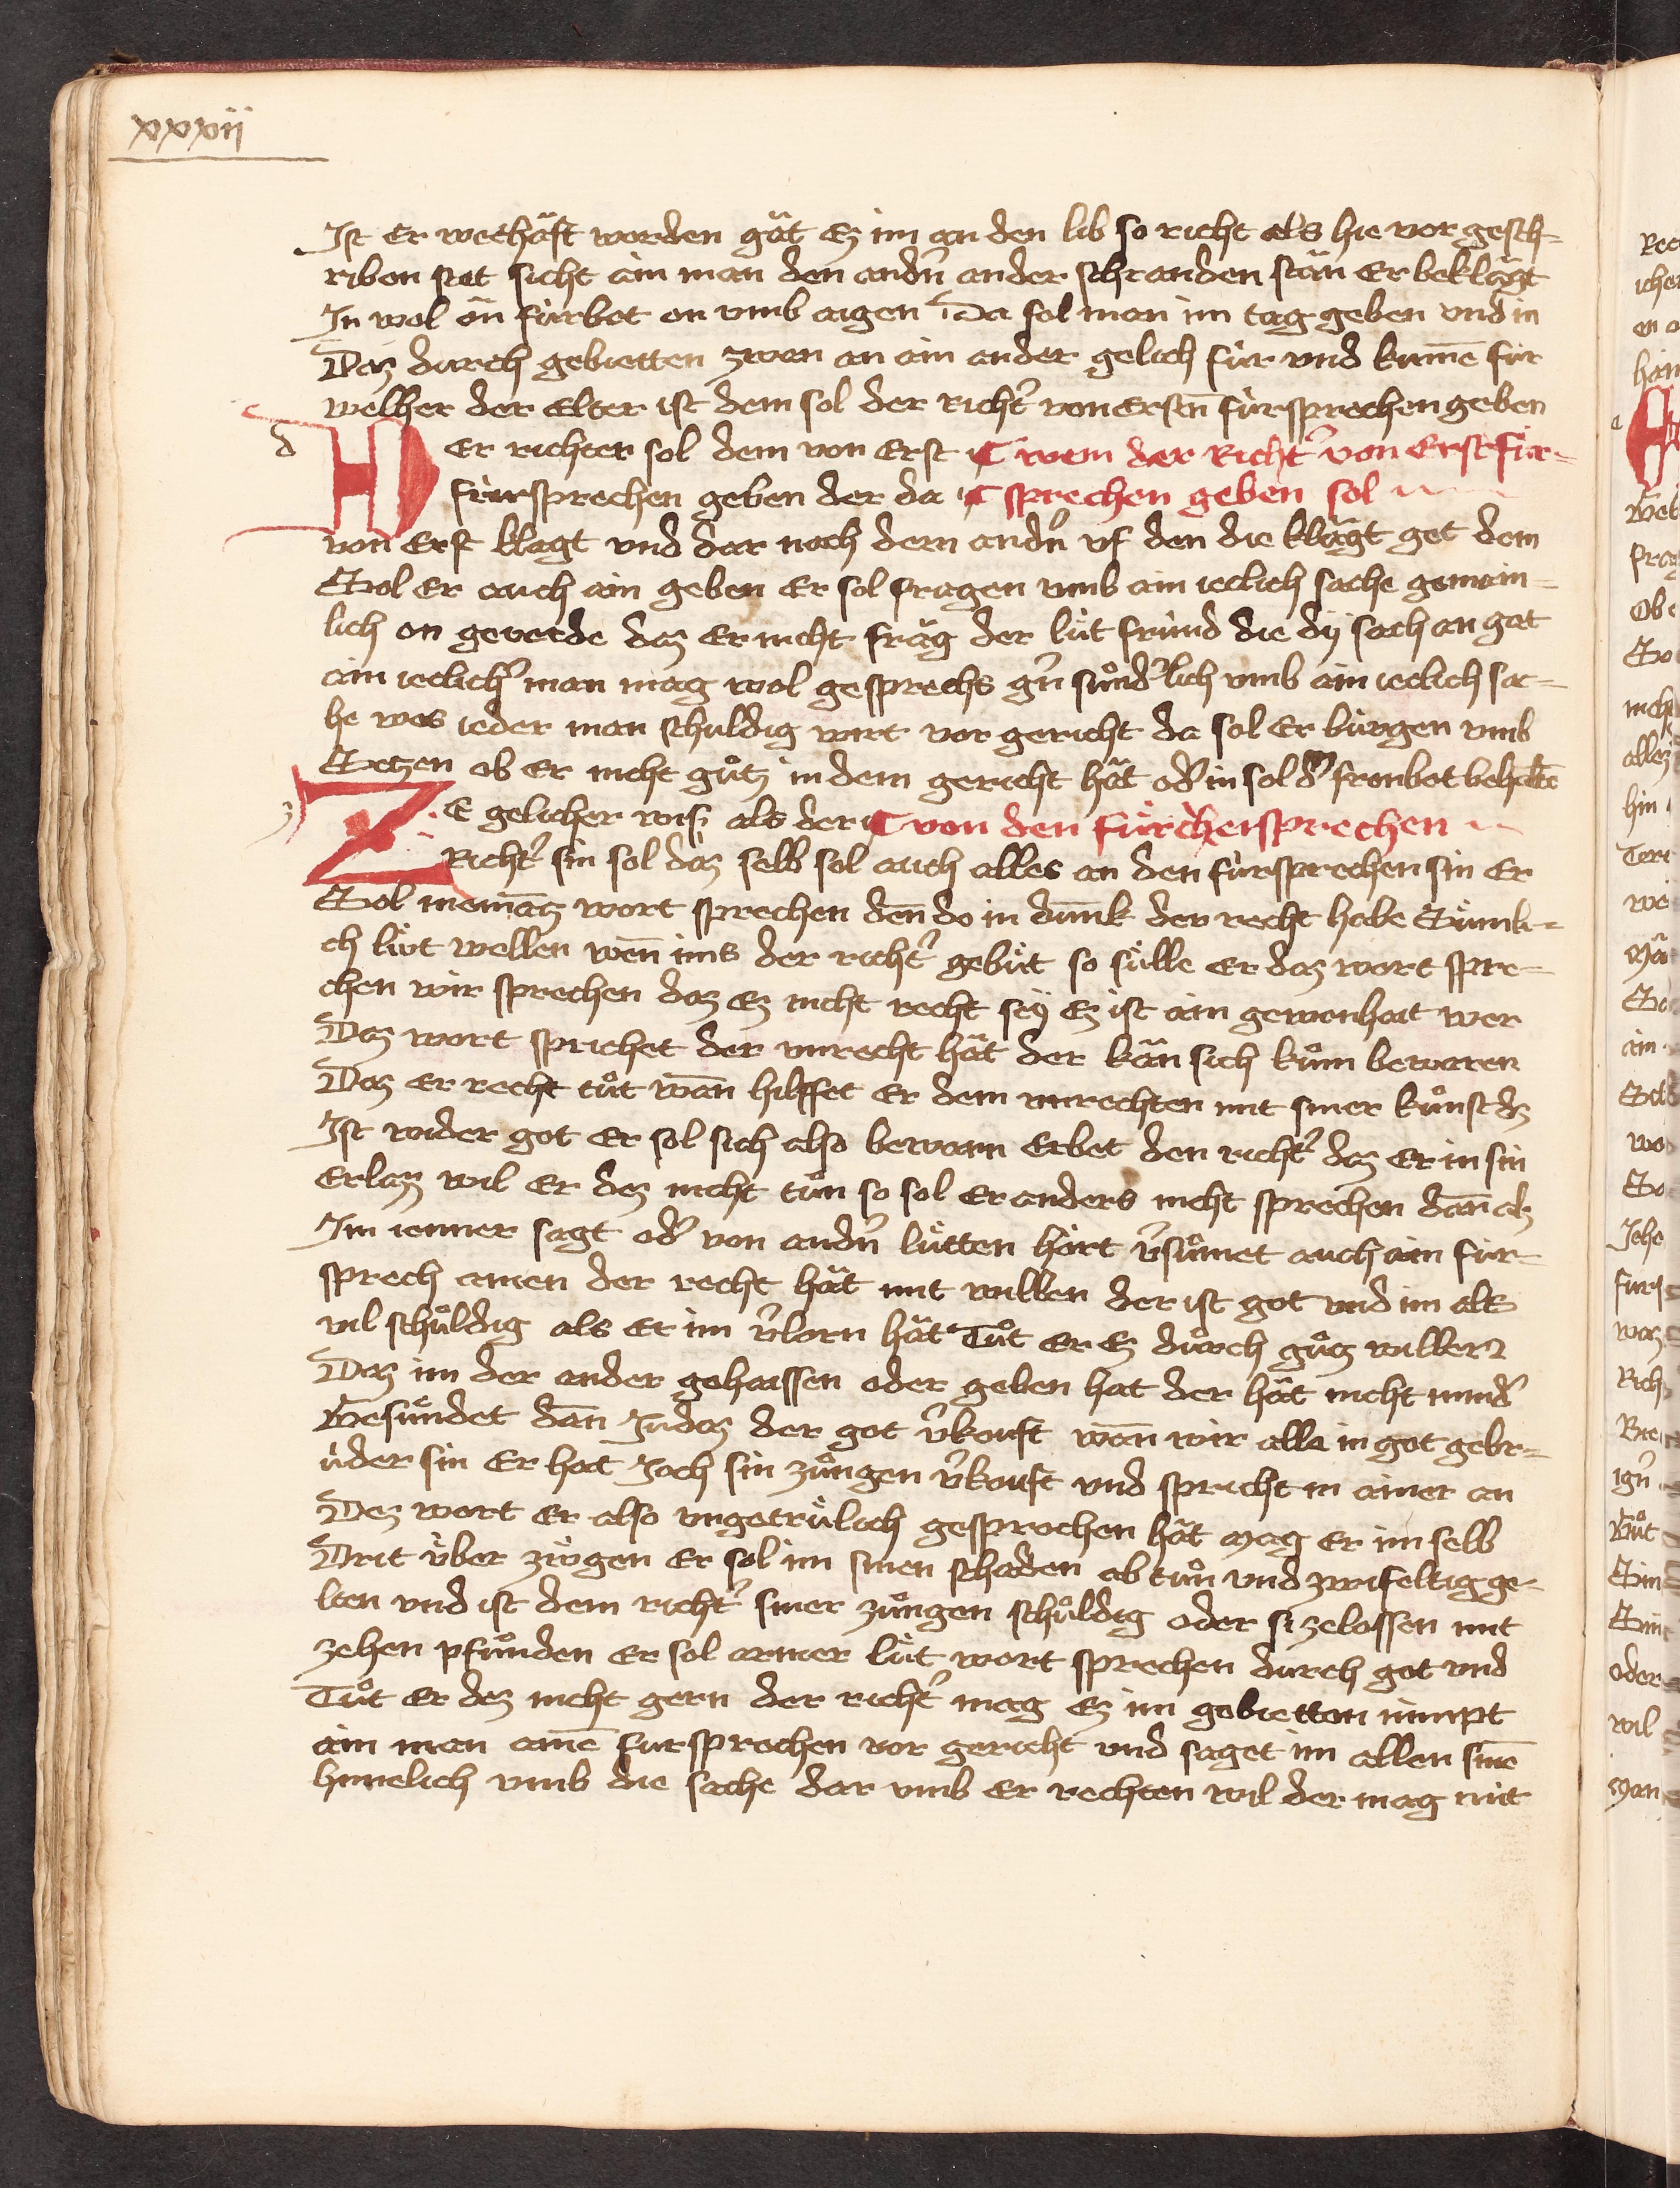 xxxii
Ist er wethäft worden gät ez im an den lib so richt als hie vor gesch=
riben stat sicht ain man den andn̄ an der schranden stän er beklägt
In wol än fürbot on vmb aigen Da sol man im tag geben vnd in
Daz durch gebietten zwen an ain ander gelich für vnd kume̅ für
welher der elter ist dem sol der richt' von ersten̄ fürsprechen geben
d
DEr richter sol dem von erst ¶ wem der Richt' von erst für=
fürsprechen geben der da ¶ sprechen geben sol
von erst klagt vnd dar nach dem andn̄ vf den die klägt get dem
Sol er auch ain geben er sol fragen vmb ain ieclich sache gemain=
lich on geverde daz er nicht fräg der lüt fründ die dy sach an gat
ain ieclich' man mag wol gesprechs gn̄ sůnd'lich vmb ain ieclich sac=
he wes ieder man schuldig wirt vor gericht da sol er bürgen vmb
Setzen ob er nicht gůtz in dem gericht hät od' in sol d' fronbot behalte̅
z
ZE gelicher wiß als der ¶ von den fürchersprechen
Richt' sin sol daz selb sol auch alles an den fürsprechen sin er
Sol niema̅tz wort sprechen den̄ do in dunk der recht habe Sümli=
ch lüt wellen wen̄ ims der richt' gebüt so sülle er daz wort spre=
chen wir sprechen daz ez nicht recht sÿ ez ist ain gewonhait wer
Daz wort sprichet der vnrecht hät der kän sich kům bewaren
Daz er recht tůt wan̄ hilffet er dem vnrechten mit siner kůnst dz
Ist wider got er sol sich also bewarn er bet den richt' daz er in sin
erlaz wil er dez nicht tůn so sol er anders nicht sprechen dan̄ alz
Im ienner sagt od' von andn̄ lütten hört v'sůmet auch ain für=
sprech ainen der recht hät mit willen der ist got vnd im als
vil schůldig als er im v'lorn hät Tůt er ez důrch gůtz willen
Daz im der ander gehaissen oder geben hat der hät nicht mind'
Gesündet dan̄ Judaz der got v'kouft wan̄ wir alle in got gebr=
üder sin er hat Joch sin zůngen v'kouft vnd spricht in ainer an
Dez wort er also vngetrülich gesprochen hät mag er im selb
Drit über zügen er sol im sinen schaden ab tůn vnd zwifeltig ge=
lten vnd ist dem richt' siner zůngen schůldig oder si ze lossen mit
zehen pfůnden er sol armer lüt wort sprechen durch got vnd
Tůt er dez nicht gern der richt' mag ez im gebietten nimpt
ain man aine̅ fursprechen vor gericht vnd saget im allen sine̅
himelich vmb die sache dar vmb er rechten wil der mag mit